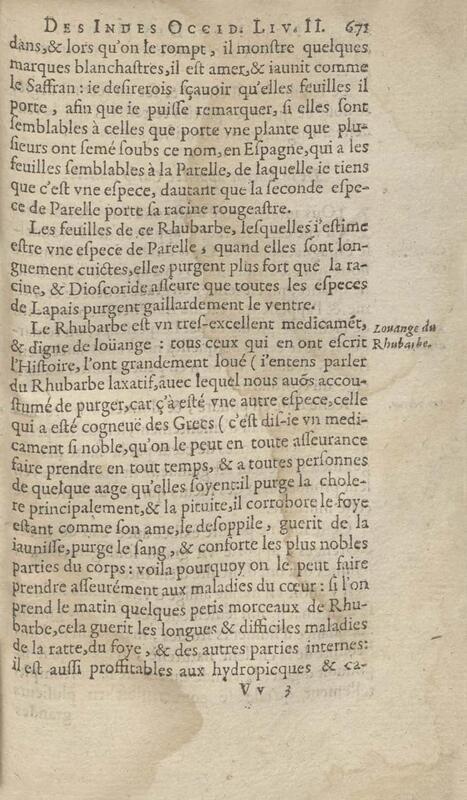 DES INDES OCCID. LIV. II. 671
dans,& lors qu'on le rompt, il monstre quelques
marques blanchastres,il est amer,& iaunit comme
le Saffran : ie desirerois sçauoir qu'elles feuilles il
porte, afin que ie puisse remarquer, si elles sont
semblables à celles que porte vne plante que plu-
sieurs ont semé soubs ce nom, en Espagne,qui a les
feuilles semblables à la Parelle, de laquelle ie tiens
que c'est vne espece, dautant que la seconde espe-
ce de Parelle porte sa racine rougeastre.
Les feuilles de ce Rhubarbe, lesquelles i'estime
estre vne espece de Parelle, quand elles sont lon-
guement cuictes,elles purgent plus fort que la ra-
cine, & Dioscoride asseure que toutes les especes
de Lapais purgent gaillardement le ventre.
Le Rhubarbe est vn tres-excellent medicamẽt,
& digne de loüange : tous ceux qui en ont escrit
l'Histoire, l'ont grandement loué ( i'entens parler
du Rhubarbe laxatif,auec lequel nous auõs accou-
stumé de purger,car ç'à esté vne autre espece,celle
qui a esté cogneuë des Grecs ( c'est dis-ie vn medi-
cament si noble,qu'on le peut en toute asseurance
faire prendre en tout temps, & a toutes personnes
de quelque aage qu'elles soyent:il purge la chole-
re principalement,& la pituite,il corrobore le foye
estant comme son ame,le desoppile, guerit de la
iaunisse,purge le sang, & conforte les plus nobles
parties du corps : voila pourquoy on le peut faire
prendre asseurément aux maladies du cœur : si l'on
prend le matin quelques petis morceaux de Rhu-
barbe,cela guerit les longues & difficiles maladies
de la ratte,du foye, & des autres parties internes:
il est aussi proffitables aux hydropicques & ca-
V v 3
Louange du
Rhubarbe.